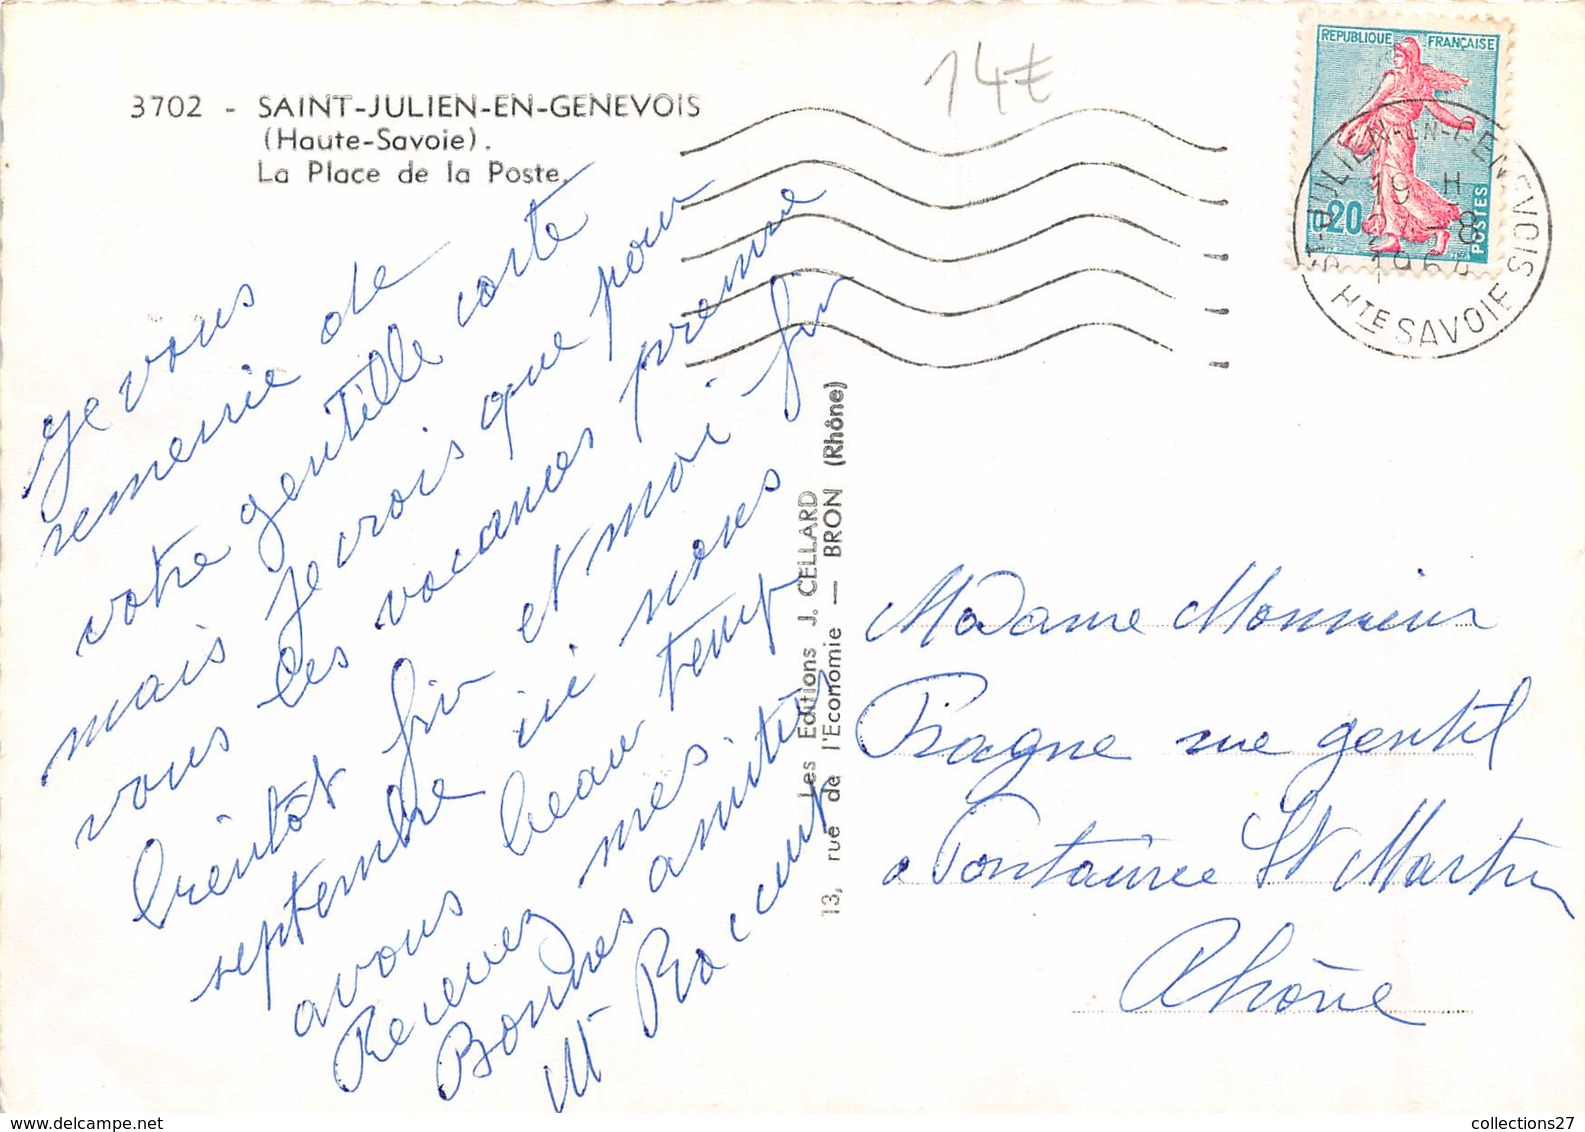 3702 - SAINT-JULIEN-EN-GENEVOIS
(Haute-Savoie).
La Place de la Poste.
14€
REPUBLIQUE FRANÇAISE
0,20
POSTES
ST-JULIEN-EN-GENEVOIS
19 H
24-8
1964
HTE SAVOIE
Je vous
remercie de
votre gentille carte
mais je crois que pour
vous les vacances prenne
bientôt fin et moi fin
septembre ici nous
avons beau temp
Recevez mes
Bonnes amitiés
Les Editions J. CELLARD
13, rue de l'Economie — BRON (Rhône)
Madame Monnieur
rue gentil
a Fontaines St Martin
Rhône
collections27